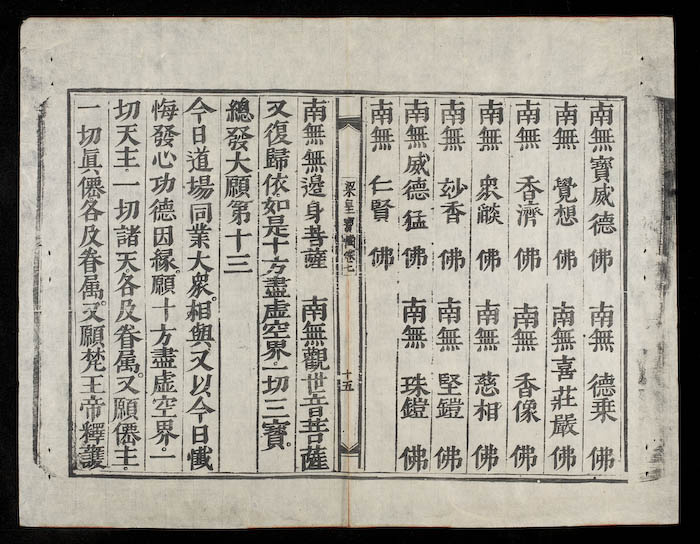 南無寶威德佛 南無德乗佛
南無覺想佛 南無喜莊嚴佛
南無香濟佛 南無香像佛
南無衆𦦨佛 南無慈相佛
南無妙香佛 南無堅鎧佛
南無威德猛佛 南無珠鎧佛
南無仁賢佛
梁皇寶懺卷七 十五
南無無邊身菩薩 南無觀世音菩薩
又復歸依如是十方盡虚空界一切三寶。
總發大願第十三
今日道場同業大衆。相與又以今日懺
悔發心功德因縁。願十方盡虚空界。一
切天主。一切諸天。各及眷属。又願僊主。
一切眞僊。各及眷属。又願梵王帝釋護